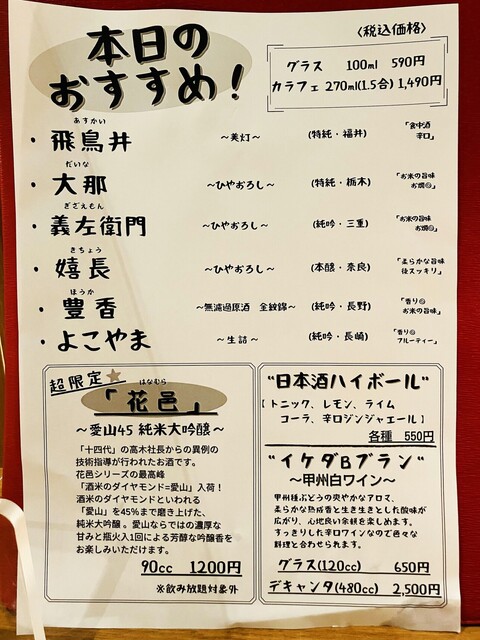 〈税込価格〉
本日の
おすすめ!
グラス 100ml 590円
カラフェ 270ml(1.5合) 1,490円
あすかい
・飛鳥井 ～美灯～ (特純・福井) 「食中酒 辛口」
だいな
・大那 ～ひやおろし～ (特純・栃木) 「お米の旨味 お燗◎」
ぎざえもん
・義左衛門 ～ひやおろし～ (純吟・三重) 「お米の旨味 お燗◎」
きちょう
・嬉長 ～ひやおろし～ (本醸・奈良) 「柔らかな旨味 後スッキリ」
ほうか
・豊香 ～無濾過原酒 金紋錦～ (純吟・長野) 「香り◎ お米の旨味」
・よこやま ～生詰～ (純吟・長崎) 「香り◎ フルーティー」
超限定★
はなむら
「花邑」
～愛山45 純米大吟醸～
「十四代」の高木社長からの異例の
技術指導が行われたお酒です。
花邑シリーズの最高峰
「酒米のダイヤモンド=愛山」入荷!
酒米のダイヤモンド
「愛山」を45%まで磨き上げた、
純米大吟醸。愛山ならではの濃厚な
甘みと瓶火入1回による芳醇な吟醸香を
お楽しみいただけます。
90cc 1200円
※飲み放題対象外
"日本酒ハイボール"
【トニック、レモン、ライム
コーラ、辛口ジンジャエール】
各種 550円
"イケダBブラン"
～甲州白ワイン～
甲州種ぶどうの爽やかなアロマ、
柔らかな熟成香と生き生きとした酸味が
広がり、心地良い余韻を楽しめます。
すっきりした辛口ワインなので色々な
料理と合わせられます。
グラス(120cc) 650円
デキャンタ(480cc) 2,500円